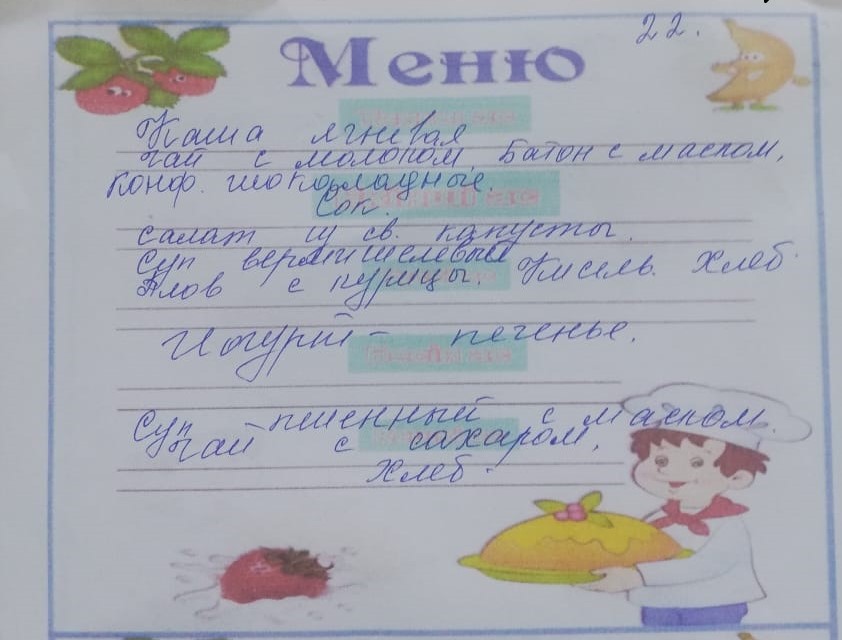 22.
Меню
Каша ячневая
Чай с молоком, Батон с маслом,
конф. шоколадные.
Сок.
Салат из св. капусты.
Суп вермишелевый
Плов с курицы. Кисель. Хлеб.
Йогурт – печенье.
Суп пшенный с маслом.
Чай с сахаром,
Хлеб.